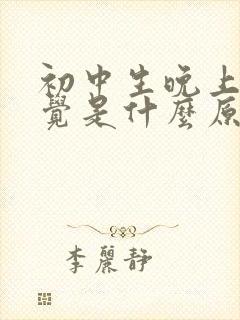 初中生晚上
覺是什麼原
李麗靜